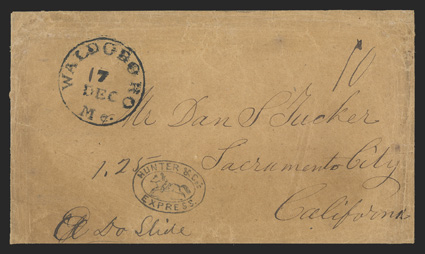 WALDOBORO
17
DEC
Me.
10
Mr Dan S Tucker
1.25
Sacramento City
California
HUNTER & CO'S
EXPRESS.
Do Slide